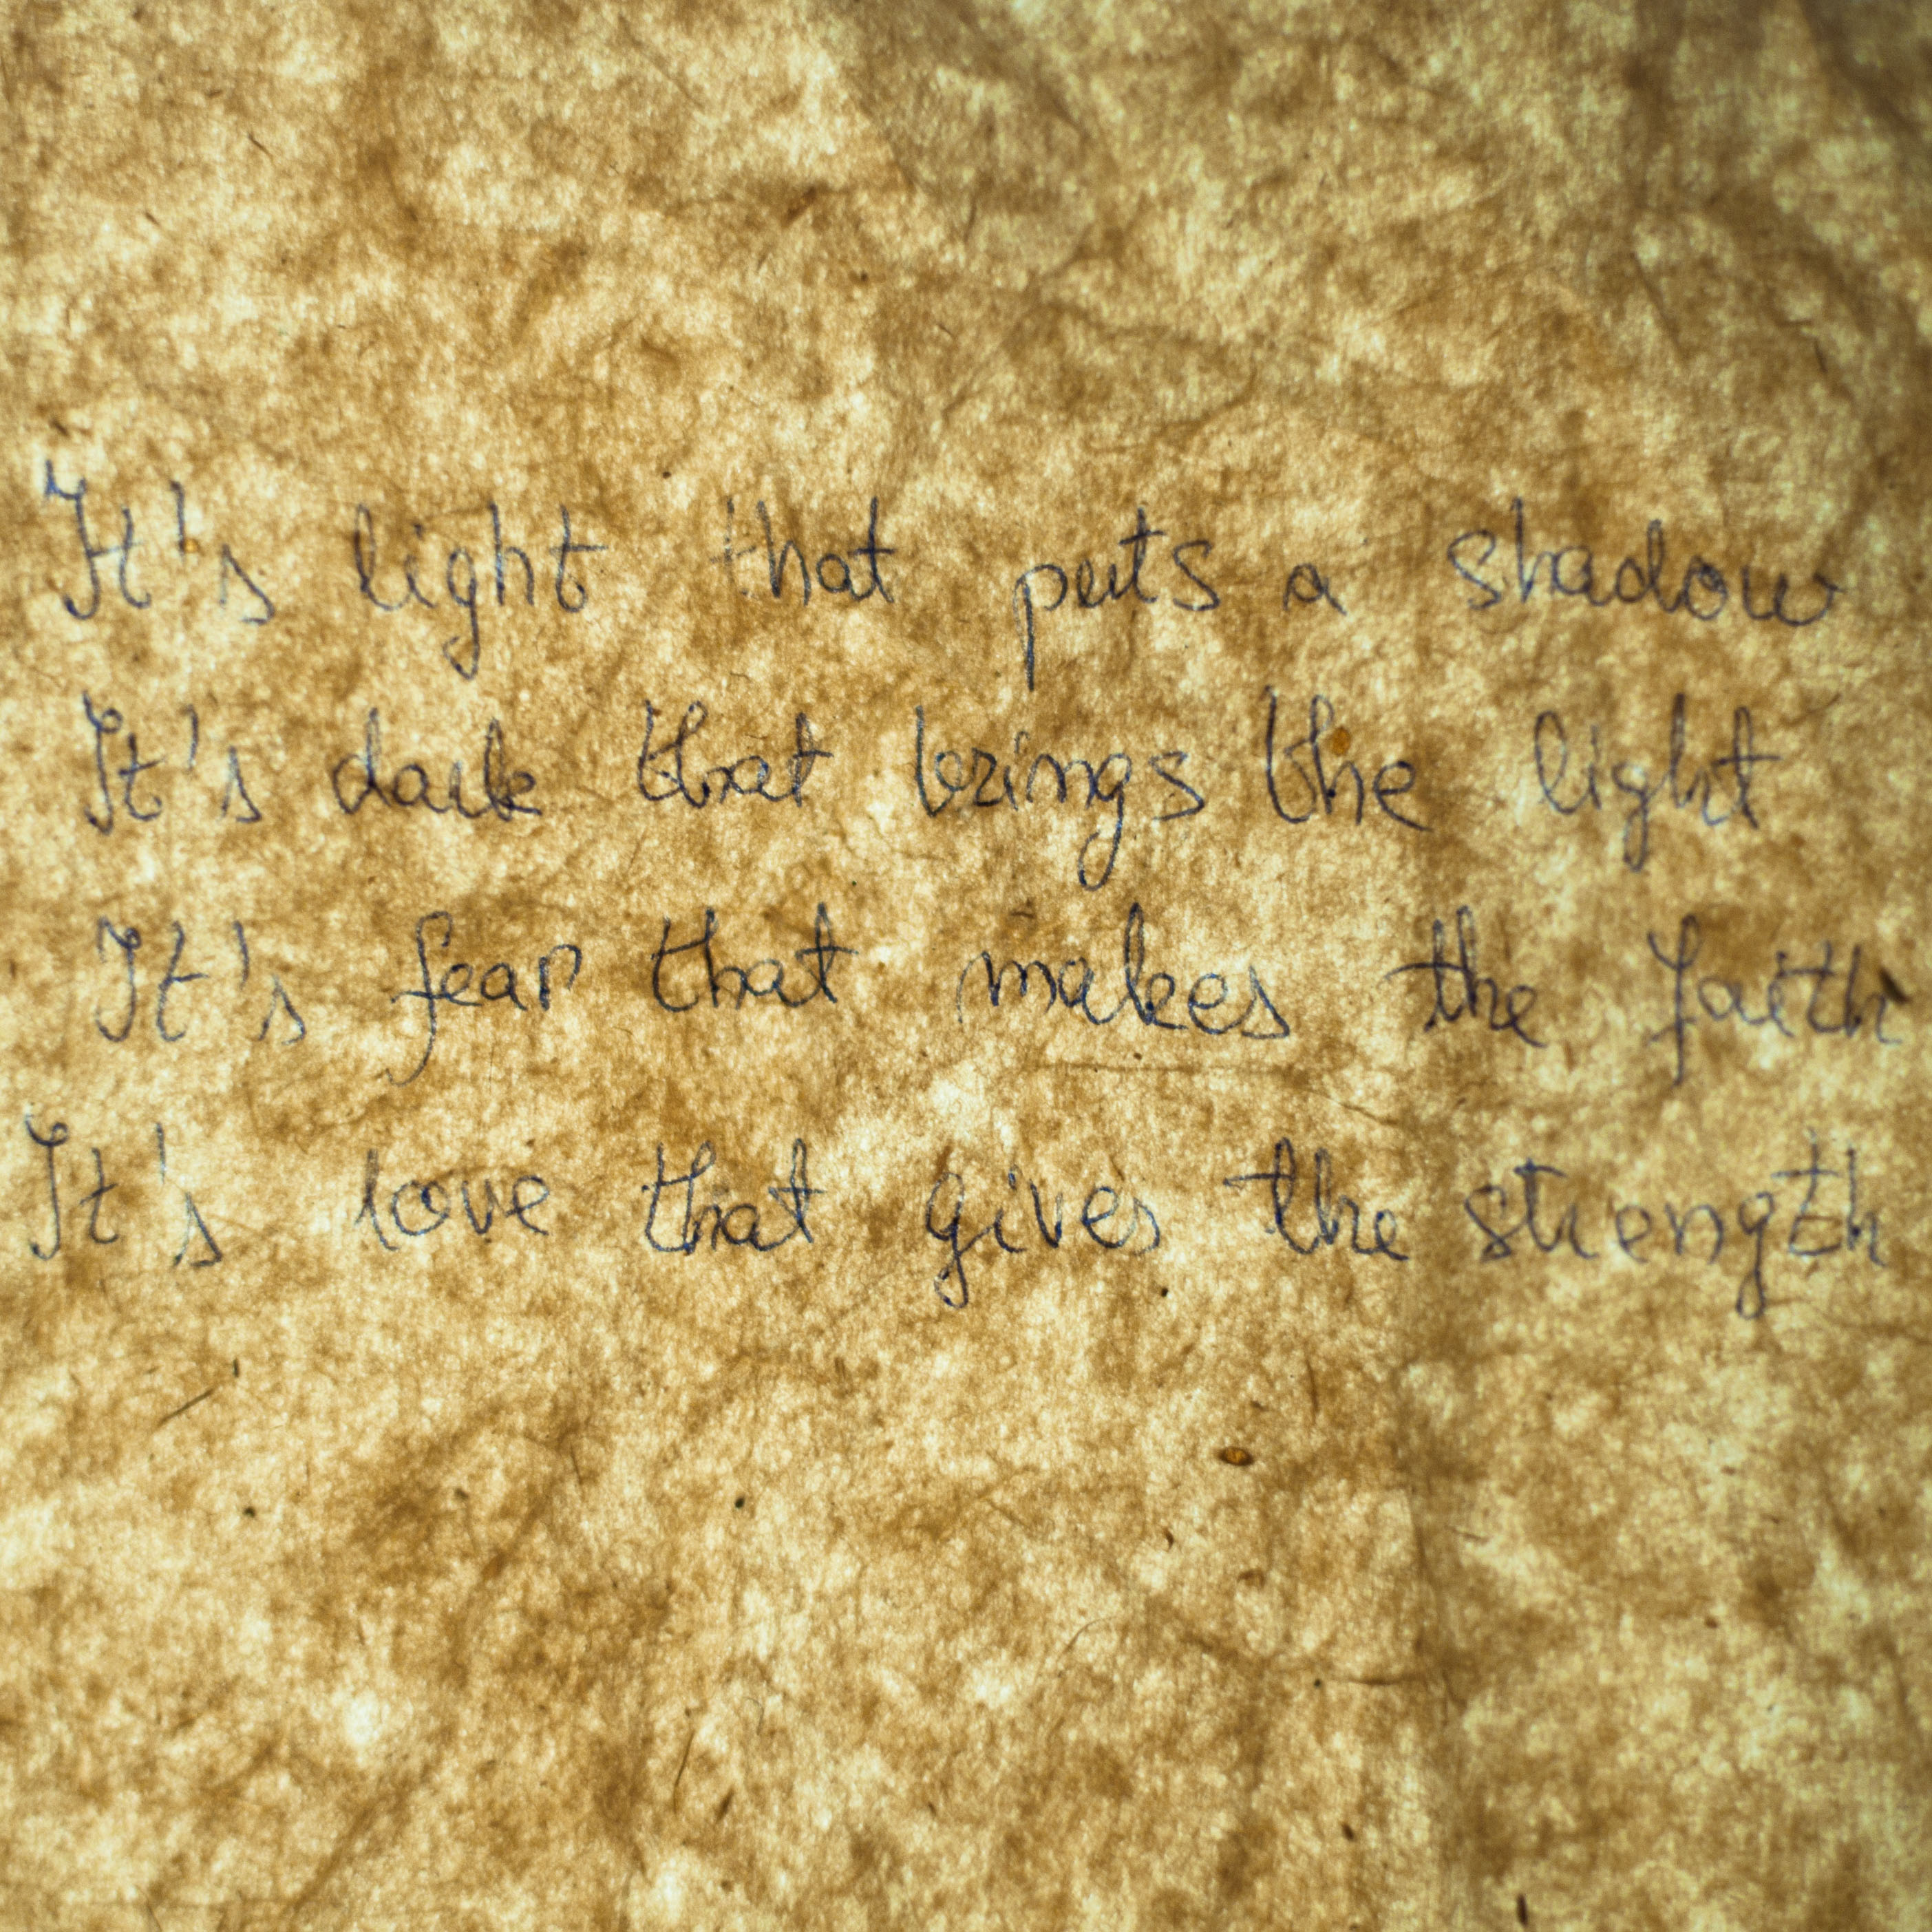 It's light that puts a shadow
It's dark that brings the light
It's fear that makes the faith
It's love that gives the strength